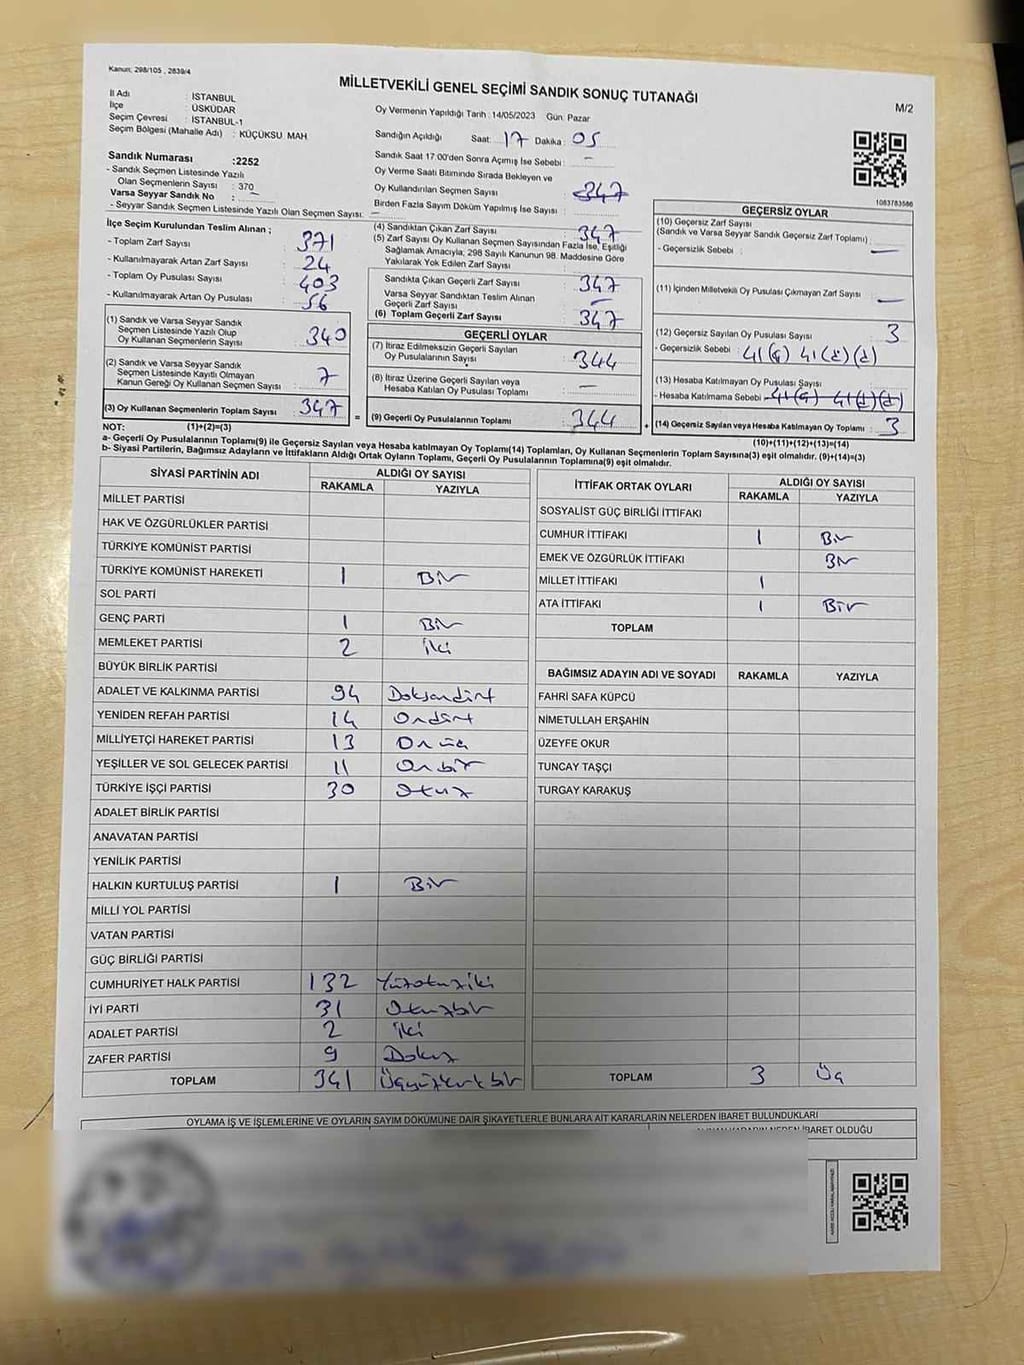 Kanun: 298/105 , 2839/4
MİLLETVEKİLİ GENEL SEÇİMİ SANDIK SONUÇ TUTANAĞI
M/2
İl Adı : İSTANBUL
İlçe : ÜSKÜDAR
Seçim Çevresi : İSTANBUL-1
Seçim Bölgesi (Mahalle Adı) : KÜÇÜKSU MAH
Oy Vermenin Yapıldığı Tarih :14/05/2023 Gün: Pazar
Sandığın Açıldığı Saat: 17 Dakika: 05
Sandık Saat 17:00'den Sonra Açımış İse Sebebi : -
Oy Verme Saati Bitiminde Sırada Bekleyen ve
Oy Kullandırılan Seçmen Sayısı 347
Birden Fazla Sayım Döküm Yapılmış İse Sayısı :
Sandık Numarası :2252
- Sandık Seçmen Listesinde Yazılı
Olan Seçmenlerin Sayısı : 370
Varsa Seyyar Sandık No : -
- Seyyar Sandık Seçmen Listesinde Yazılı Olan Seçmen Sayısı: -
1083783586
İlçe Seçim Kurulundan Teslim Alınan ;
- Toplam Zarf Sayısı : 371
- Kullanılmayarak Artan Zarf Sayısı : 24
- Toplam Oy Pusulası Sayısı : 403
- Kullanılmayarak Artan Oy Pusulası : 56
(1) Sandık ve Varsa Seyyar Sandık
Seçmen Listesinde Yazılı Olup
Oy Kullanan Seçmenlerin Sayısı : 340
(2) Sandık ve Varsa Seyyar Sandık
Seçmen Listesinde Kayıtlı Olmayan
Kanun Gereği Oy Kullanan Seçmen Sayısı : 7
(3) Oy Kullanan Seçmenlerin Toplam Sayısı : 347
(4) Sandıktan Çıkan Zarf Sayısı : 347
(5) Zarf Sayısı Oy Kullanan Seçmen Sayısından Fazla İse, Eşitliği
Sağlamak Amacıyla, 298 Sayılı Kanunun 98. Maddesine Göre
Yakılarak Yok Edilen Zarf Sayısı :
Sandıkta Çıkan Geçerli Zarf Sayısı : 347
Varsa Seyyar Sandıktan Teslim Alınan
Geçerli Zarf Sayısı : -
(6) Toplam Geçerli Zarf Sayısı : 347
GEÇERLİ OYLAR
(7) İtiraz Edilmeksizin Geçerli Sayılan
Oy Pusulalarının Sayısı : 344
(8) İtiraz Üzerine Geçerli Sayılan veya
Hesaba Katılan Oy Pusulaları Toplamı : -
= (9) Geçerli Oy Pusulalarının Toplamı : 344 +
GEÇERSİZ OYLAR
(10) Geçersiz Zarf Sayısı
(Sandık ve Varsa Seyyar Sandık Geçersiz Zarf Toplamı) :
- Geçersizlik Sebebi : -
(11) İçinden Milletvekili Oy Pusulası Çıkmayan Zarf Sayısı : -
(12) Geçersiz Sayılan Oy Pusulası Sayısı : 3
- Geçersizlik Sebebi :
(13) Hesaba Katılmayan Oy Pusulası Sayısı :
- Hesaba Katılmama Sebebi :
(14) Geçersiz Sayılan veya Hesaba Katılmayan Oy Toplamı : 3
NOT: (1)+(2)=(3)
(10)+(11)+(12)+(13)=(14)
a- Geçerli Oy Pusulalarının Toplamı(9) ile Geçersiz Sayılan veya Hesaba katılmayan Oy Toplamı(14) Toplamları, Oy Kullanan Seçmenlerin Toplam Sayısına(3) eşit olmalıdır. (9)+(14)=(3)
b- Siyasi Partilerin, Bağımsız Adayların ve İttifakların Aldığı Ortak Oyların Toplamı, Geçerli Oy Pusulalarının Toplamına(9) eşit olmalıdır.
SİYASİ PARTİNİN ADI ALDIĞI OY SAYISI
RAKAMLA YAZIYLA
MİLLET PARTİSİ
HAK VE ÖZGÜRLÜKLER PARTİSİ
TÜRKİYE KOMÜNİST PARTİSİ
TÜRKİYE KOMÜNİST HAREKETİ 1 Bir
SOL PARTİ
GENÇ PARTİ 1 Bir
MEMLEKET PARTİSİ 2 iki
BÜYÜK BİRLİK PARTİSİ
ADALET VE KALKINMA PARTİSİ 94 Doksandört
YENİDEN REFAH PARTİSİ 14 Ondört
MİLLİYETÇİ HAREKET PARTİSİ 13 On üç
YEŞİLLER VE SOL GELECEK PARTİSİ 11 Onbir
TÜRKİYE İŞÇİ PARTİSİ 30 Otuz
ADALET BİRLİK PARTİSİ
ANAVATAN PARTİSİ
YENİLİK PARTİSİ
HALKIN KURTULUŞ PARTİSİ 1 Bir
MİLLİ YOL PARTİSİ
VATAN PARTİSİ
GÜÇ BİRLİĞİ PARTİSİ
CUMHURİYET HALK PARTİSİ 132 Yüzotuziki
İYİ PARTİ 31 Otuzbir
ADALET PARTİSİ 2 iki
ZAFER PARTİSİ 9 Dokuz
TOPLAM 341 Üçyüzkırk bir
İTTİFAK ORTAK OYLARI ALDIĞI OY SAYISI
RAKAMLA YAZIYLA
SOSYALİST GÜÇ BİRLİĞİ İTTİFAKI
CUMHUR İTTİFAKI 1 Bir
EMEK VE ÖZGÜRLÜK İTTİFAKI Bir
MİLLET İTTİFAKI 1
ATA İTTİFAKI 1 Bir
TOPLAM
BAĞIMSIZ ADAYIN ADI VE SOYADI RAKAMLA YAZIYLA
FAHRİ SAFA KÜPCÜ
NİMETULLAH ERŞAHİN
ÜZEYFE OKUR
TUNCAY TAŞÇI
TURGAY KARAKUŞ
TOPLAM 3 Üç
OYLAMA İŞ VE İŞLEMLERİNE VE OYLARIN SAYIM DÖKÜMÜNE DAİR ŞİKAYETLERLE BUNLARA AİT KARARLARIN NELERDEN İBARET BULUNDUKLARI
İBARET OLDUĞU